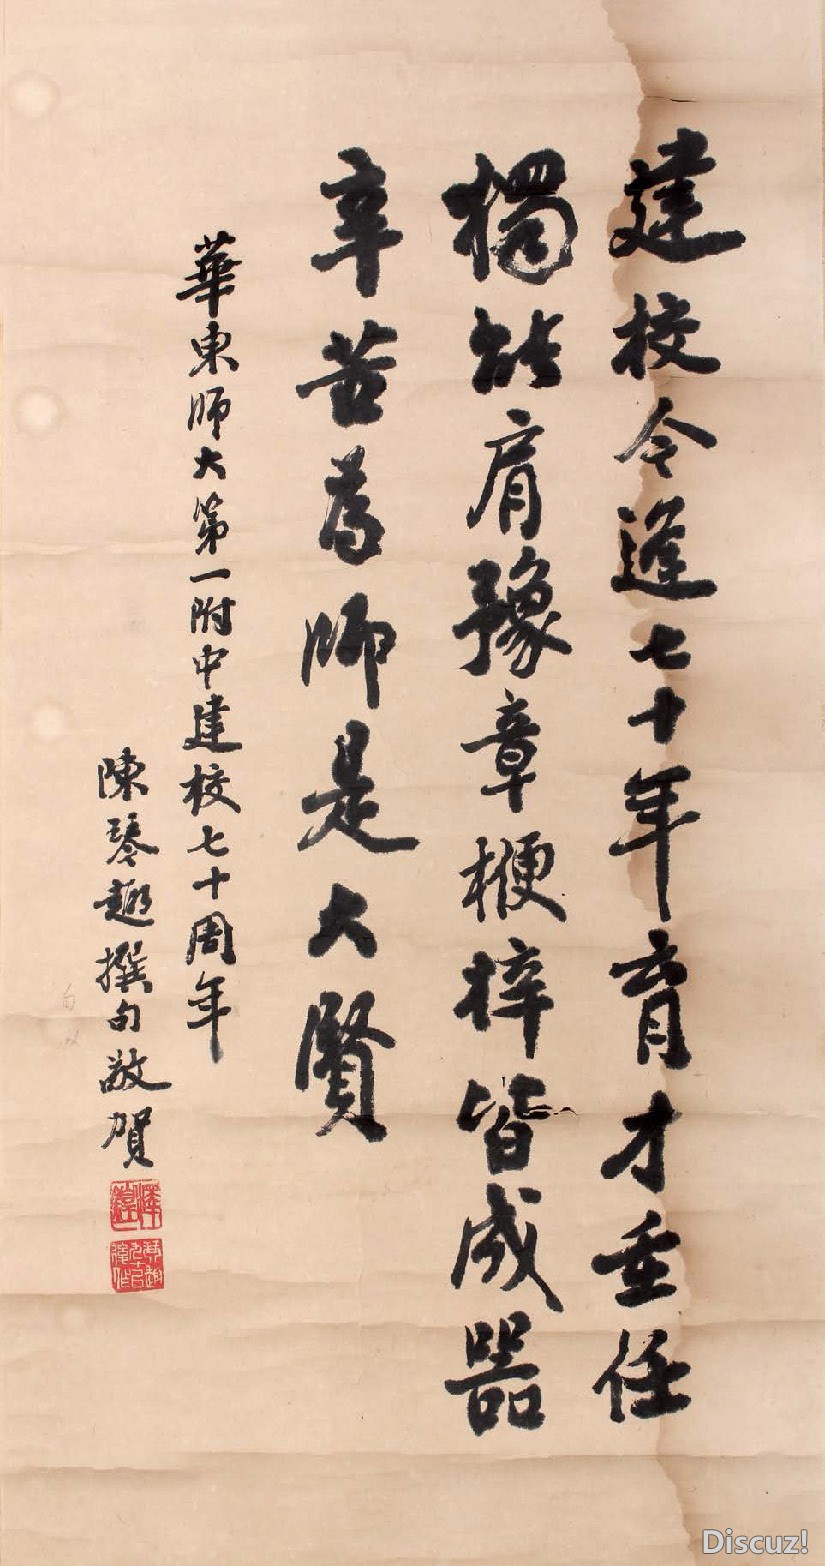 建校令逢七十年育才重任
獨能肩豫章楩梓皆成器
辛苦為師是大賢
華東師大第一附中建校七十周年
陳琴趣撰句敬賀
Discuz!